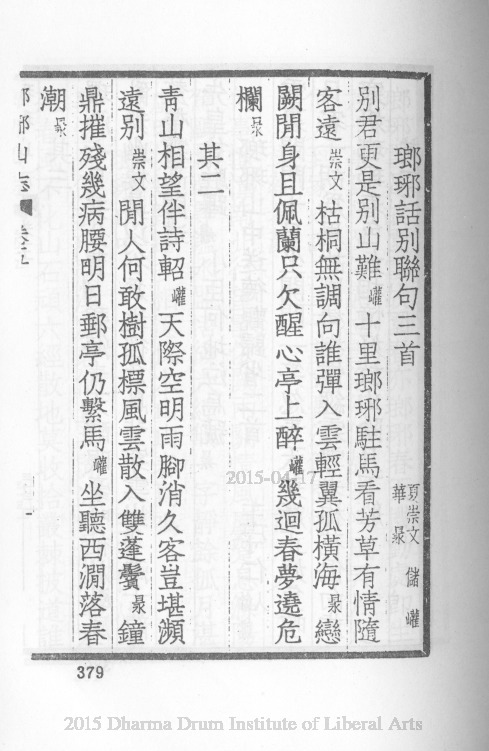 瑯琊話別聯句三首 夏崇文 儲巏 華㫤
別君更是別山難巏十里瑯琊駐馬看芳草有情隨
客遠崇文枯桐無調向誰彈入雲輕翼孤橫海㫤戀
闕閒身且佩蘭只欠醒心亭上醉巏幾迴春夢遶危
欄㫤
其二
青山相望伴詩軺巏天際空明雨腳消久客豈堪瀕
遠別崇文閒人何敢樹孤標風雲散入雙蓬鬢㫤鐘
鼎摧殘幾病腰明日郵亭仍繫馬巏坐聽西澗落春
潮㫤
379
2015-04-17
2015 Dharma Drum Institute of Liberal Arts